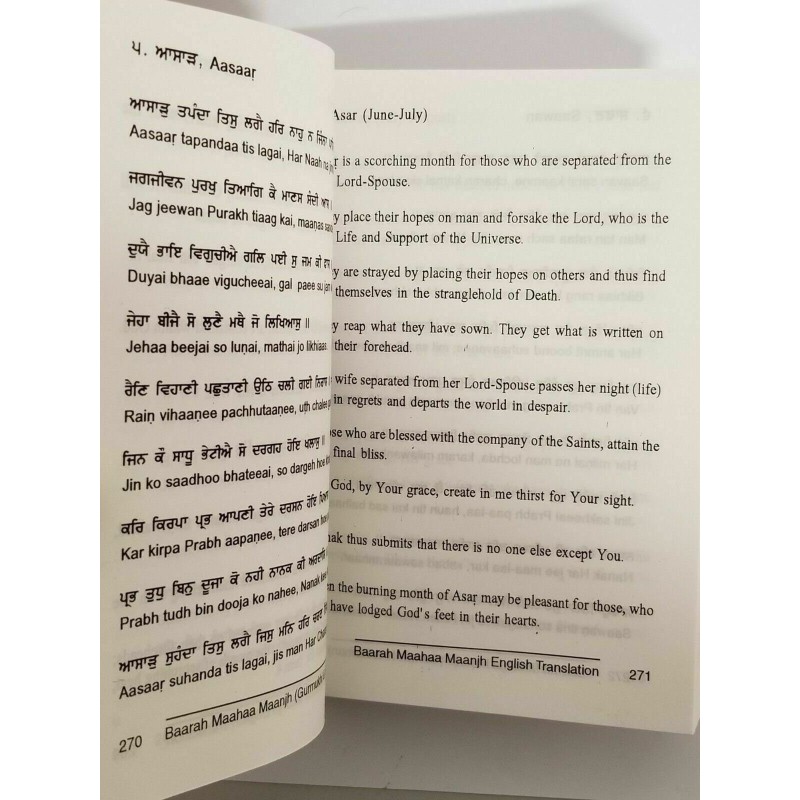 ੫. ਆਸਾੜ, Aasaaṛ
ਆਸਾੜੁ ਤਪੰਦਾ ਤਿਸੁ ਲਗੈ ਹਰਿ ਨਾਹੁ ਨ ਜਿੰਨਾ
Aasaaṛ tapandaa tis lagai, Har Naah na
ਜਗਜੀਵਨ ਪੁਰਖੁ ਤਿਆਗਿ ਕੈ ਮਾਣਸ ਸੰਦੀ ਆਸ
Jag jeewan Purakh tiaag kai, maaṇas
ਦੁਯੈ ਭਾਇ ਵਿਗੁਚੀਐ ਗਲਿ ਪਈ ਸੁ ਜਮ ਕੀ
Duyai bhaae vigucheeai, gal paee su
ਜੇਹਾ ਬੀਜੈ ਸੋ ਲੁਣੈ ਮਥੈ ਜੋ ਲਿਖਿਆਸੁ ॥
Jehaa beejai so luṇai, mathai jo likhiaas
ਰੈਣਿ ਵਿਹਾਣੀ ਪਛੁਤਾਣੀ ਉਠਿ ਚਲੀ ਗਈ
Raiṇ vihaaṇee pachhutaaṇee, uṭh
ਜਿਨ ਕੌ ਸਾਧੂ ਭੇਟੀਐ ਸੋ ਦਰਗਹ ਹੋਇ ਖਲਾਸੁ ॥
Jin ko saadhoo bhateeai, so dargeh hoe
ਕਰਿ ਕਿਰਪਾ ਪ੍ਰਭ ਆਪਣੀ ਤੇਰੇ ਦਰਸਨ ਹੋਇ
Kar kirpa Prabh aapaṇee, tere darsan
ਪ੍ਰਭ ਤੁਧੁ ਬਿਨੁ ਦੂਜਾ ਕੋ ਨਹੀ ਨਾਨਕ ਕੀ
Prabh tudh bin dooja ko nahee, Nanak
ਆਸਾੜੁ ਸੁਹੰਦਾ ਤਿਸੁ ਲਗੈ ਜਿਸੁ ਮਨਿ ਹਰਿ
Aasaaṛ suhanda tis lagai, jis man Har
Baarah Maahaa Maanjh
270
Asar (June-July)
is a scorching month for those who are separated from the
Lord-Spouse.
place their hopes on man and forsake the Lord, who is the
Life and Support of the Universe.
are strayed by placing their hopes on others and thus find
themselves in the stranglehold of Death.
reap what they have sown. They get what is written on
their forehead.
wife separated from her Lord-Spouse passes her night (life)
in regrets and departs the world in despair.
who are blessed with the company of the Saints, attain the
final bliss.
God, by Your grace, create in me thirst for Your sight.
thus submits that there is no one else except You.
the burning month of Asaṛ may be pleasant for those, who
have lodged God's feet in their hearts.
Baarah Maahaa Maanjh English Translation
271